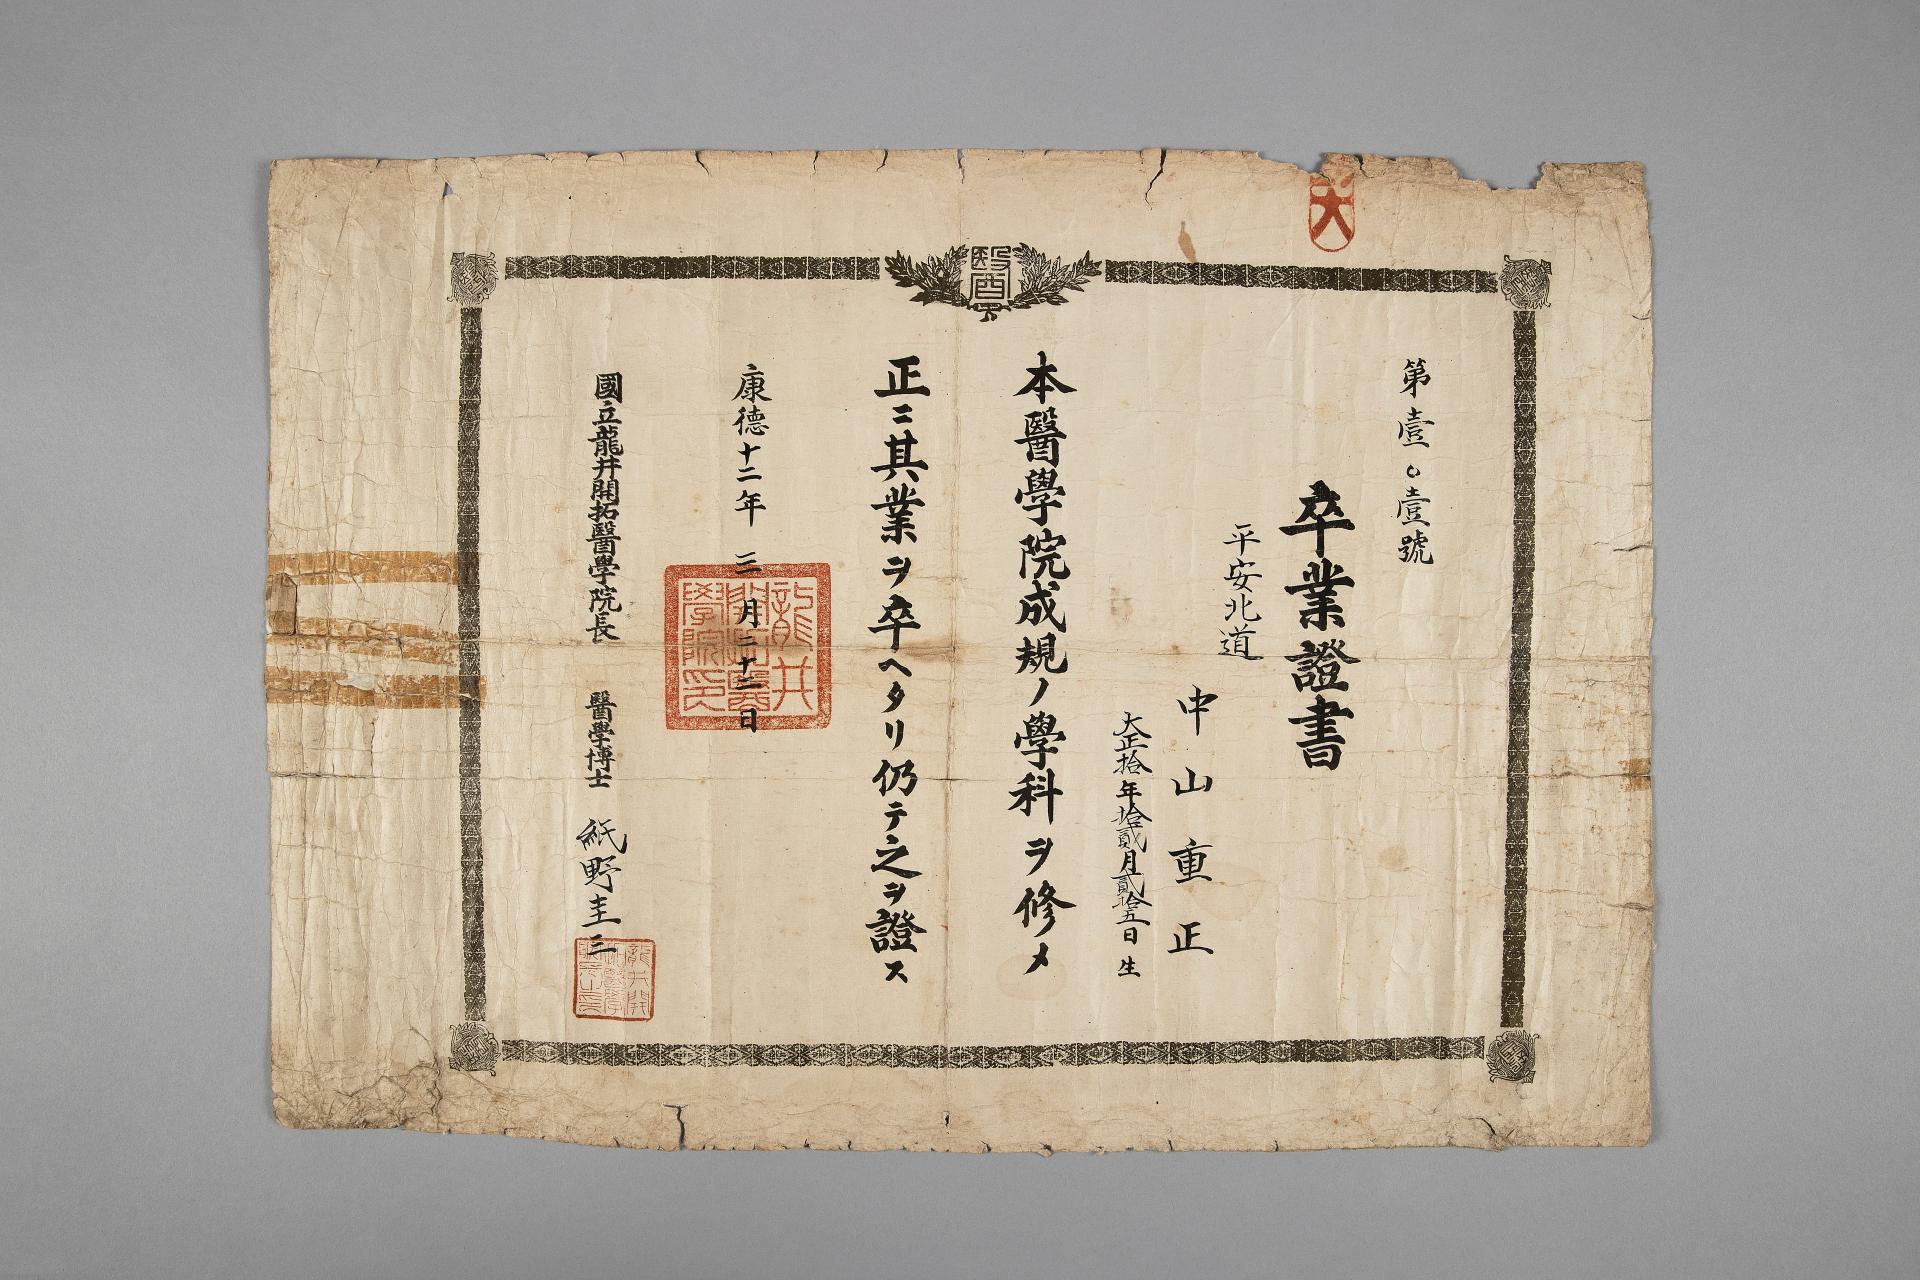 第壹〇壹號
卒業證書
平安北道
中山重正
大正拾年拾貳月貳拾五日生
本醫學院成規ノ學科ヲ修メ
正ニ其業ヲ卒ヘタリ仍テ之ヲ證ス
康德十二年三月二十三日
國立龍井開拓醫學院長 醫學博士 紙野圭三
醫
大
龍井開拓醫學院印